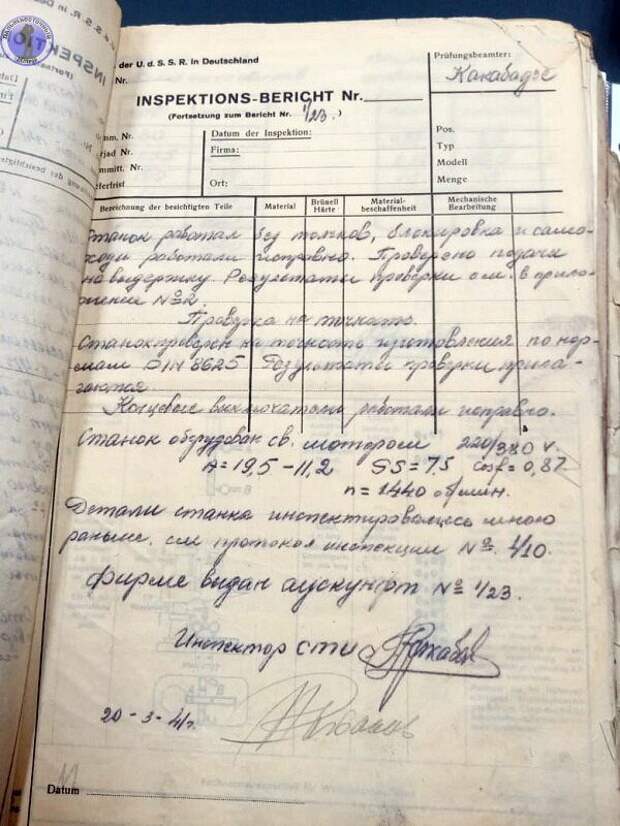 der U. d. S. S. R. in Deutschland
Nr.
Prüfungsbeamter:
Какабадзе
INSPEKTIONS-BERICHT Nr.
(Fortsetzung zum Bericht Nr. 1/23.)
mm. Nr.
Datum der Inspektion:
Pos.
jad Nr.
Firma:
Typ
mmitt. Nr.
Modell
ferfrist
Ort:
Menge
Bezeichnung der besichtigten Teile
Material
Brinell Härte
Material-beschaffenheit
Mechanische Bearbeitung
Станок работал без толчков, блокировка и само-
ходы работали исправно. Проверено подачи
на выдержку. Результаты проверки см. в прило-
жении №2.
Проверка на точность.
Станок проверен на точность изготовления по нор-
мам DIN 8625 Результаты проверки прила-
гаются.
Концевые выключатели работали исправно.
Станок оборудован св. мотором 220/380 V.
A=19,5-11,2 PS=7,5 cosf=0,87
n=1440 об/мин.
Детали станка инспектировались мною
раньше, см протокол инспекции № 1/10.
Фирме выдан аускунфт № 1/23.
Инспектор СТИ
20-3-41г.
Datum